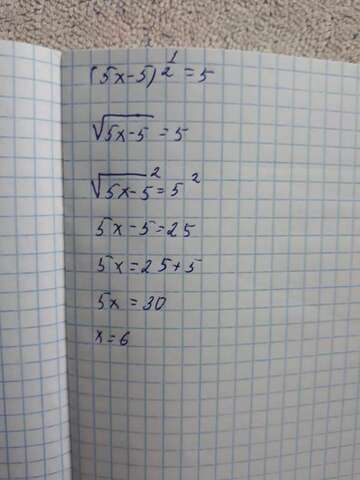 (5x-5)^{\frac{1}{2}}=5
\sqrt{5x-5}=5
\sqrt{5x-5}^2=5^2
5x-5=25
5x=25+5
5x=30
x=6